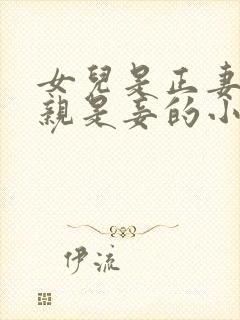 女兒是正妻
親是妾的小
伊流